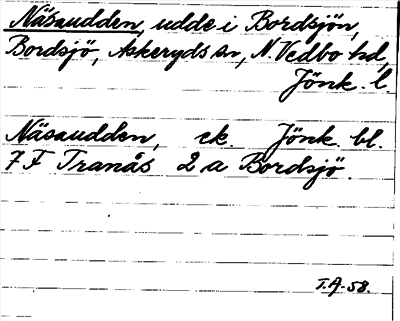 Näsudden, udde i Bordsjön,
Bordsjö, Askeryds sn, N. Vedbo hd,
Jönk. l.
Näsudden, ek. Jönk. bl.
7 F Tranås 2 a Bordsjö.
T.A-58.